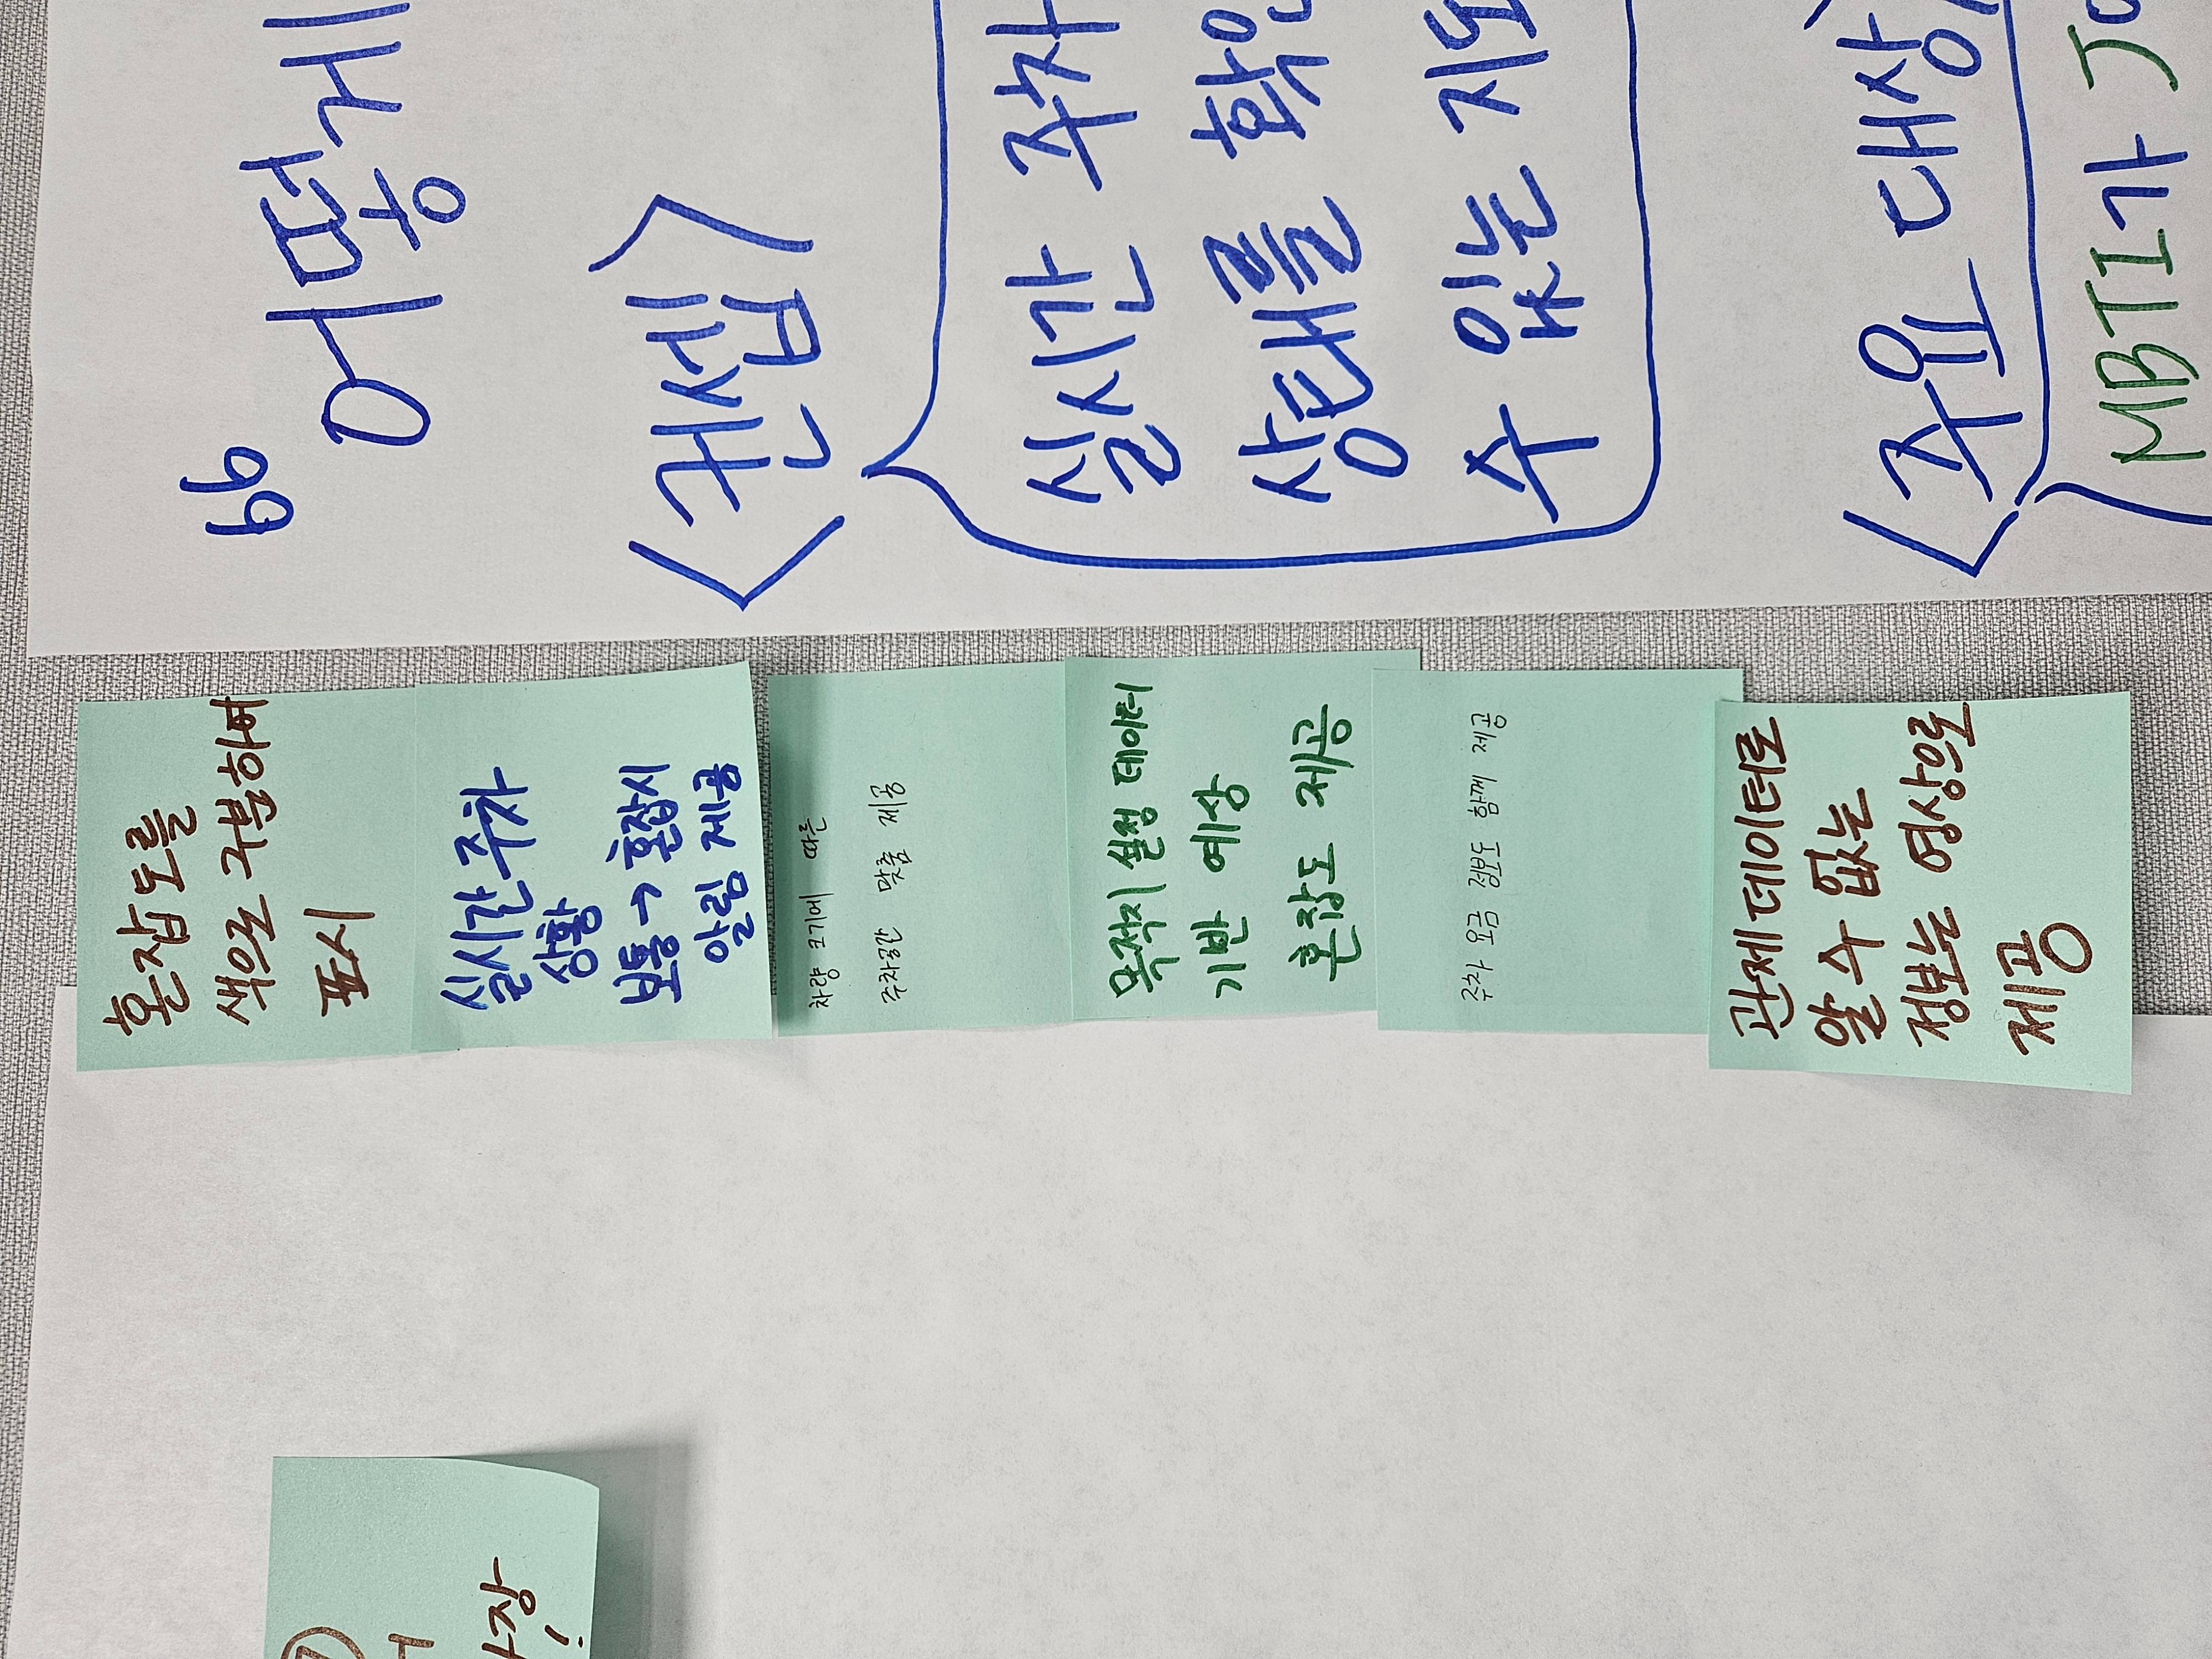 장
!
혼잡도를
색으로 구분하여
표시
실시간 주차
상황
보통 → 혼잡시
알림 제공
차량 크기에 따른
주차공간 맞춤 제공
목적지 설정 데이터
기반 예상
혼잡도 제공
주차 요금 정보도 함께 제공
관제 데이터로
알 수 없는
정보는 영상으로
제공
66
어떻게
<컨셉>
실시간 주차
상태를
수 있는 지도
<주요 대상>
MBTI가 J